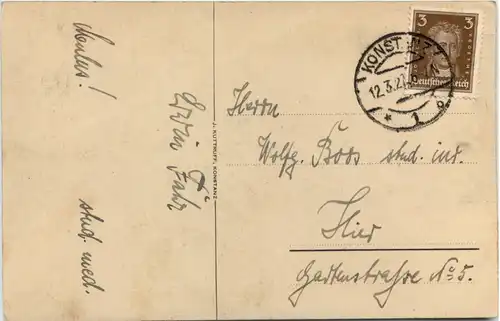 Servus!
Erwin Fahr
stud. med.
J. RUTTKOFF, KONSTANZ
3 3
Deutsches Reich
KONSTANZ
12.3.27
* 1
Herrn
Wolfg. Boos stud. iur.
Hier
Gartenstraße No 5.